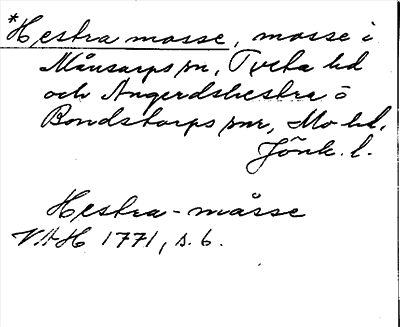 *Hestra mosse, mosse i
Månsarps sn, Tveta hd
och Angerdshestra o
Bondstorps snr, Mo hd,
Jönk. l.
Hestra-måsse
VAH 1771, s. 6.